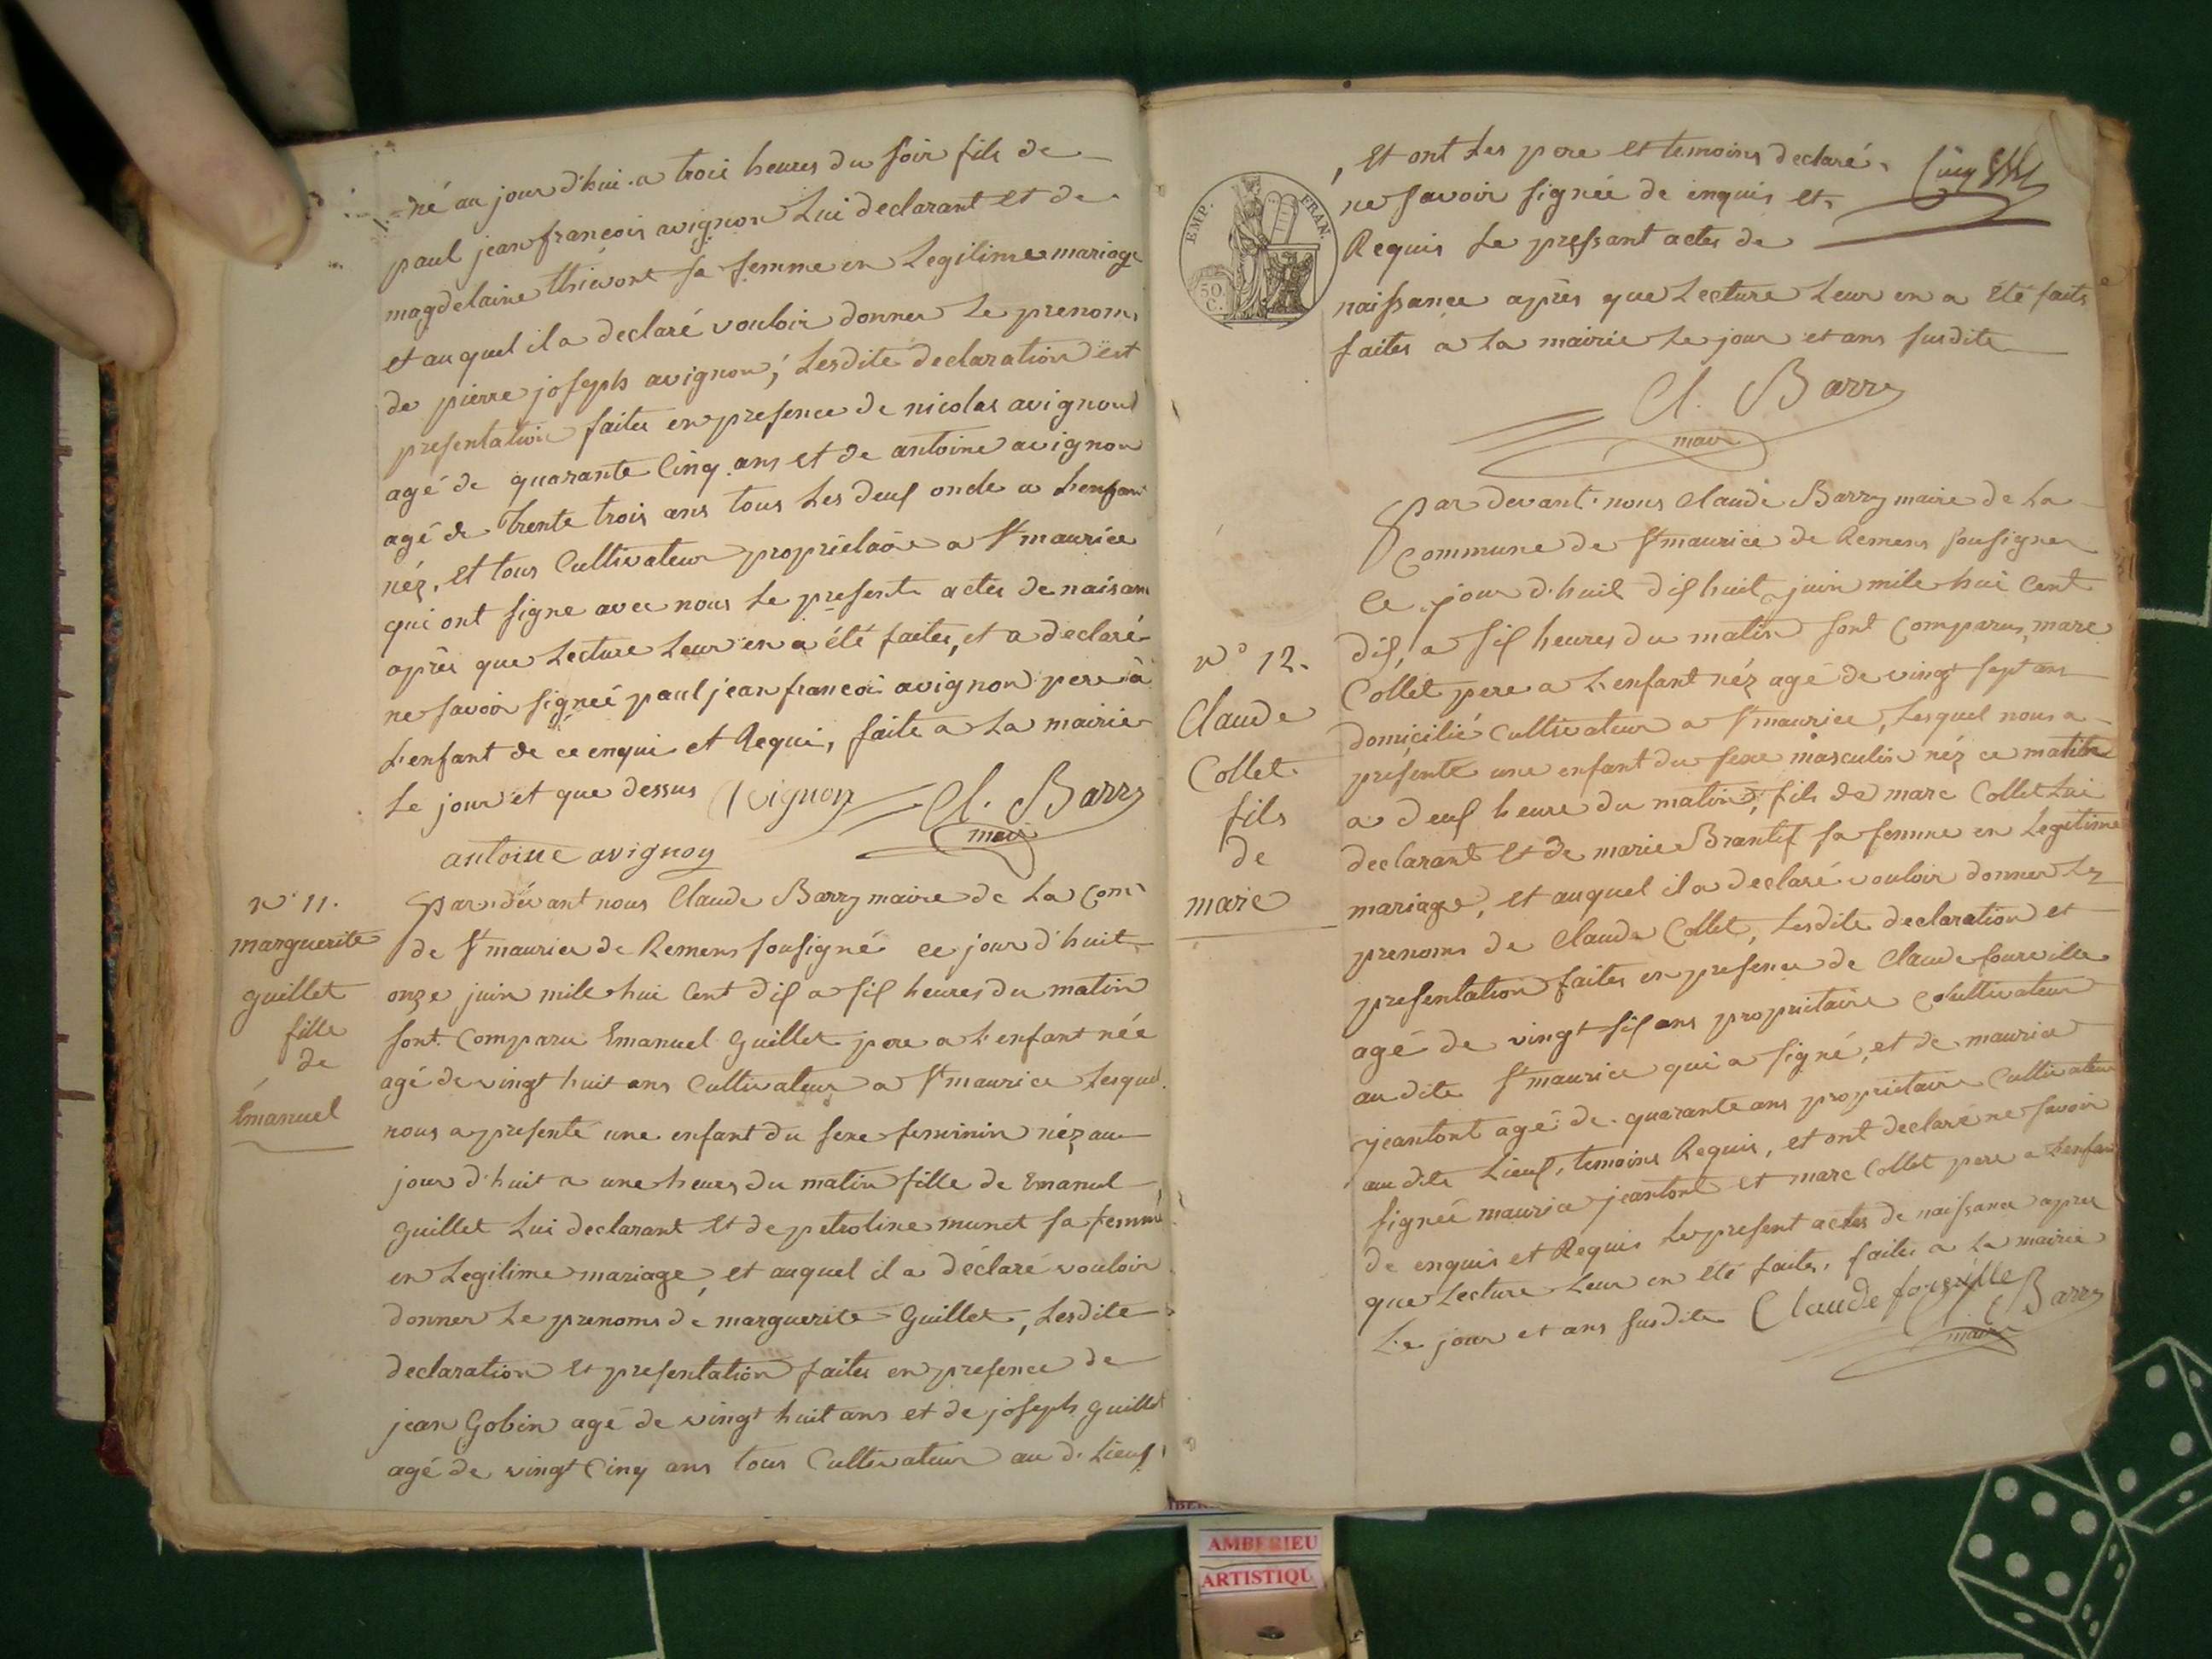 né au jour d'hui a trois heures du soir fils de
paul jean françois avignon Lui declarant et de
magdelaine thievont sa femme en Legitime mariage
et auquel il a declaré vouloir donner Le prenoms
de pierre joseph avignon, Lesdite declaration est
presentation faites en presence de nicolas avignon
agé de quarante Cinq ans et de antoine avignon
agé de trente trois ans tous Les deux oncle a L'enfant
néz, et tous Cultivateur proprietaire a St maurice
qui ont signe avec nous Le present actes de naisan
après que Lecture Leur en a été faites, et a declaré
ne savoir signéé paul jean françoi avignon pere à
L'enfant de ce enqui et Requi, faite a La mairie
Le jour et que dessus avignon Cl. Barry
maire
antoine avignon
n° 11.
marguerite
guillet
fille
de
Emanuel
Par devant nous Claude Barry maire de La Com
de St maurice de Remens sousigné ce jour d'huit
onze juin mile hui Cent dix a six heures du matin
sont Comparu Emanuel Guillet pere a L'enfant née
agé de vingt huit ans Cultivateur a St maurice Lesquel
nous a presenté une enfant du sexe feminin néz au
jour d'huit a une heures du matin fille de Emanuel
Guillet Lui declarant Et de petroline munet sa femme
en Legitime mariage, et auquel il a déclaré vouloir
donner Le prenoms de marguerite Guillet, Lesdite
declaration Et presentation faites en presence de
jean Gobin agé de vingt huit ans et de joseph guillet
agé de vingt Cinq ans tous Cultivateur au d. Lieux
EMP. FRAN.
50
C.
, Et ont Les pere et temoins declaré
ne savoir signée de enquis et
Requis Le pressant actes de
naissance après que Lecture Leur en a Eté faits
faites a La mairie Le jour et ans susdite
Cl. Barry
maire
Par devant nous Claude Barry maire de La
Commune de St maurice de Remens sousigner
Ce jour d'huit dix huit juin mile hui Cent
dix, a six heures du matin sont Comparus, marc
Collet pere a L'enfant néz agé de vingt sept ans
domicilié Cultivateur a St maurice, Lesquel nous a
presenté une enfant du sexe masculin néz ce matin
a deux heure du matin, fils de marc Collet Lui
declarant Et de marie Brantif sa femme en Legitime
mariage, et auquel il a declaré vouloir donner Le
prenoms de Claude Collet, Lesdite declaration et
presentation faites en presence de Claude fourville
agé de vingt six ans proprietaire Cultivateur
au dite St maurice qui a signé, et de maurice
jeantont agé de quarante ans proprietaire Cultivateur
au dite Lieux, temoins Requis, et ont declaré ne savoir
signeé maurice jeantont et marc Collet pere a L'enfant
de enquis et Requis Le present actes de naissance apres
que Lecture Leur en Eté faites, faites a La mairie
Le jour et ans susdite Claude fourville Cl. Barry
maire
n° 12.
Claude
Collet
fils
de
marc
AMBERIEU
ARTISTIQU